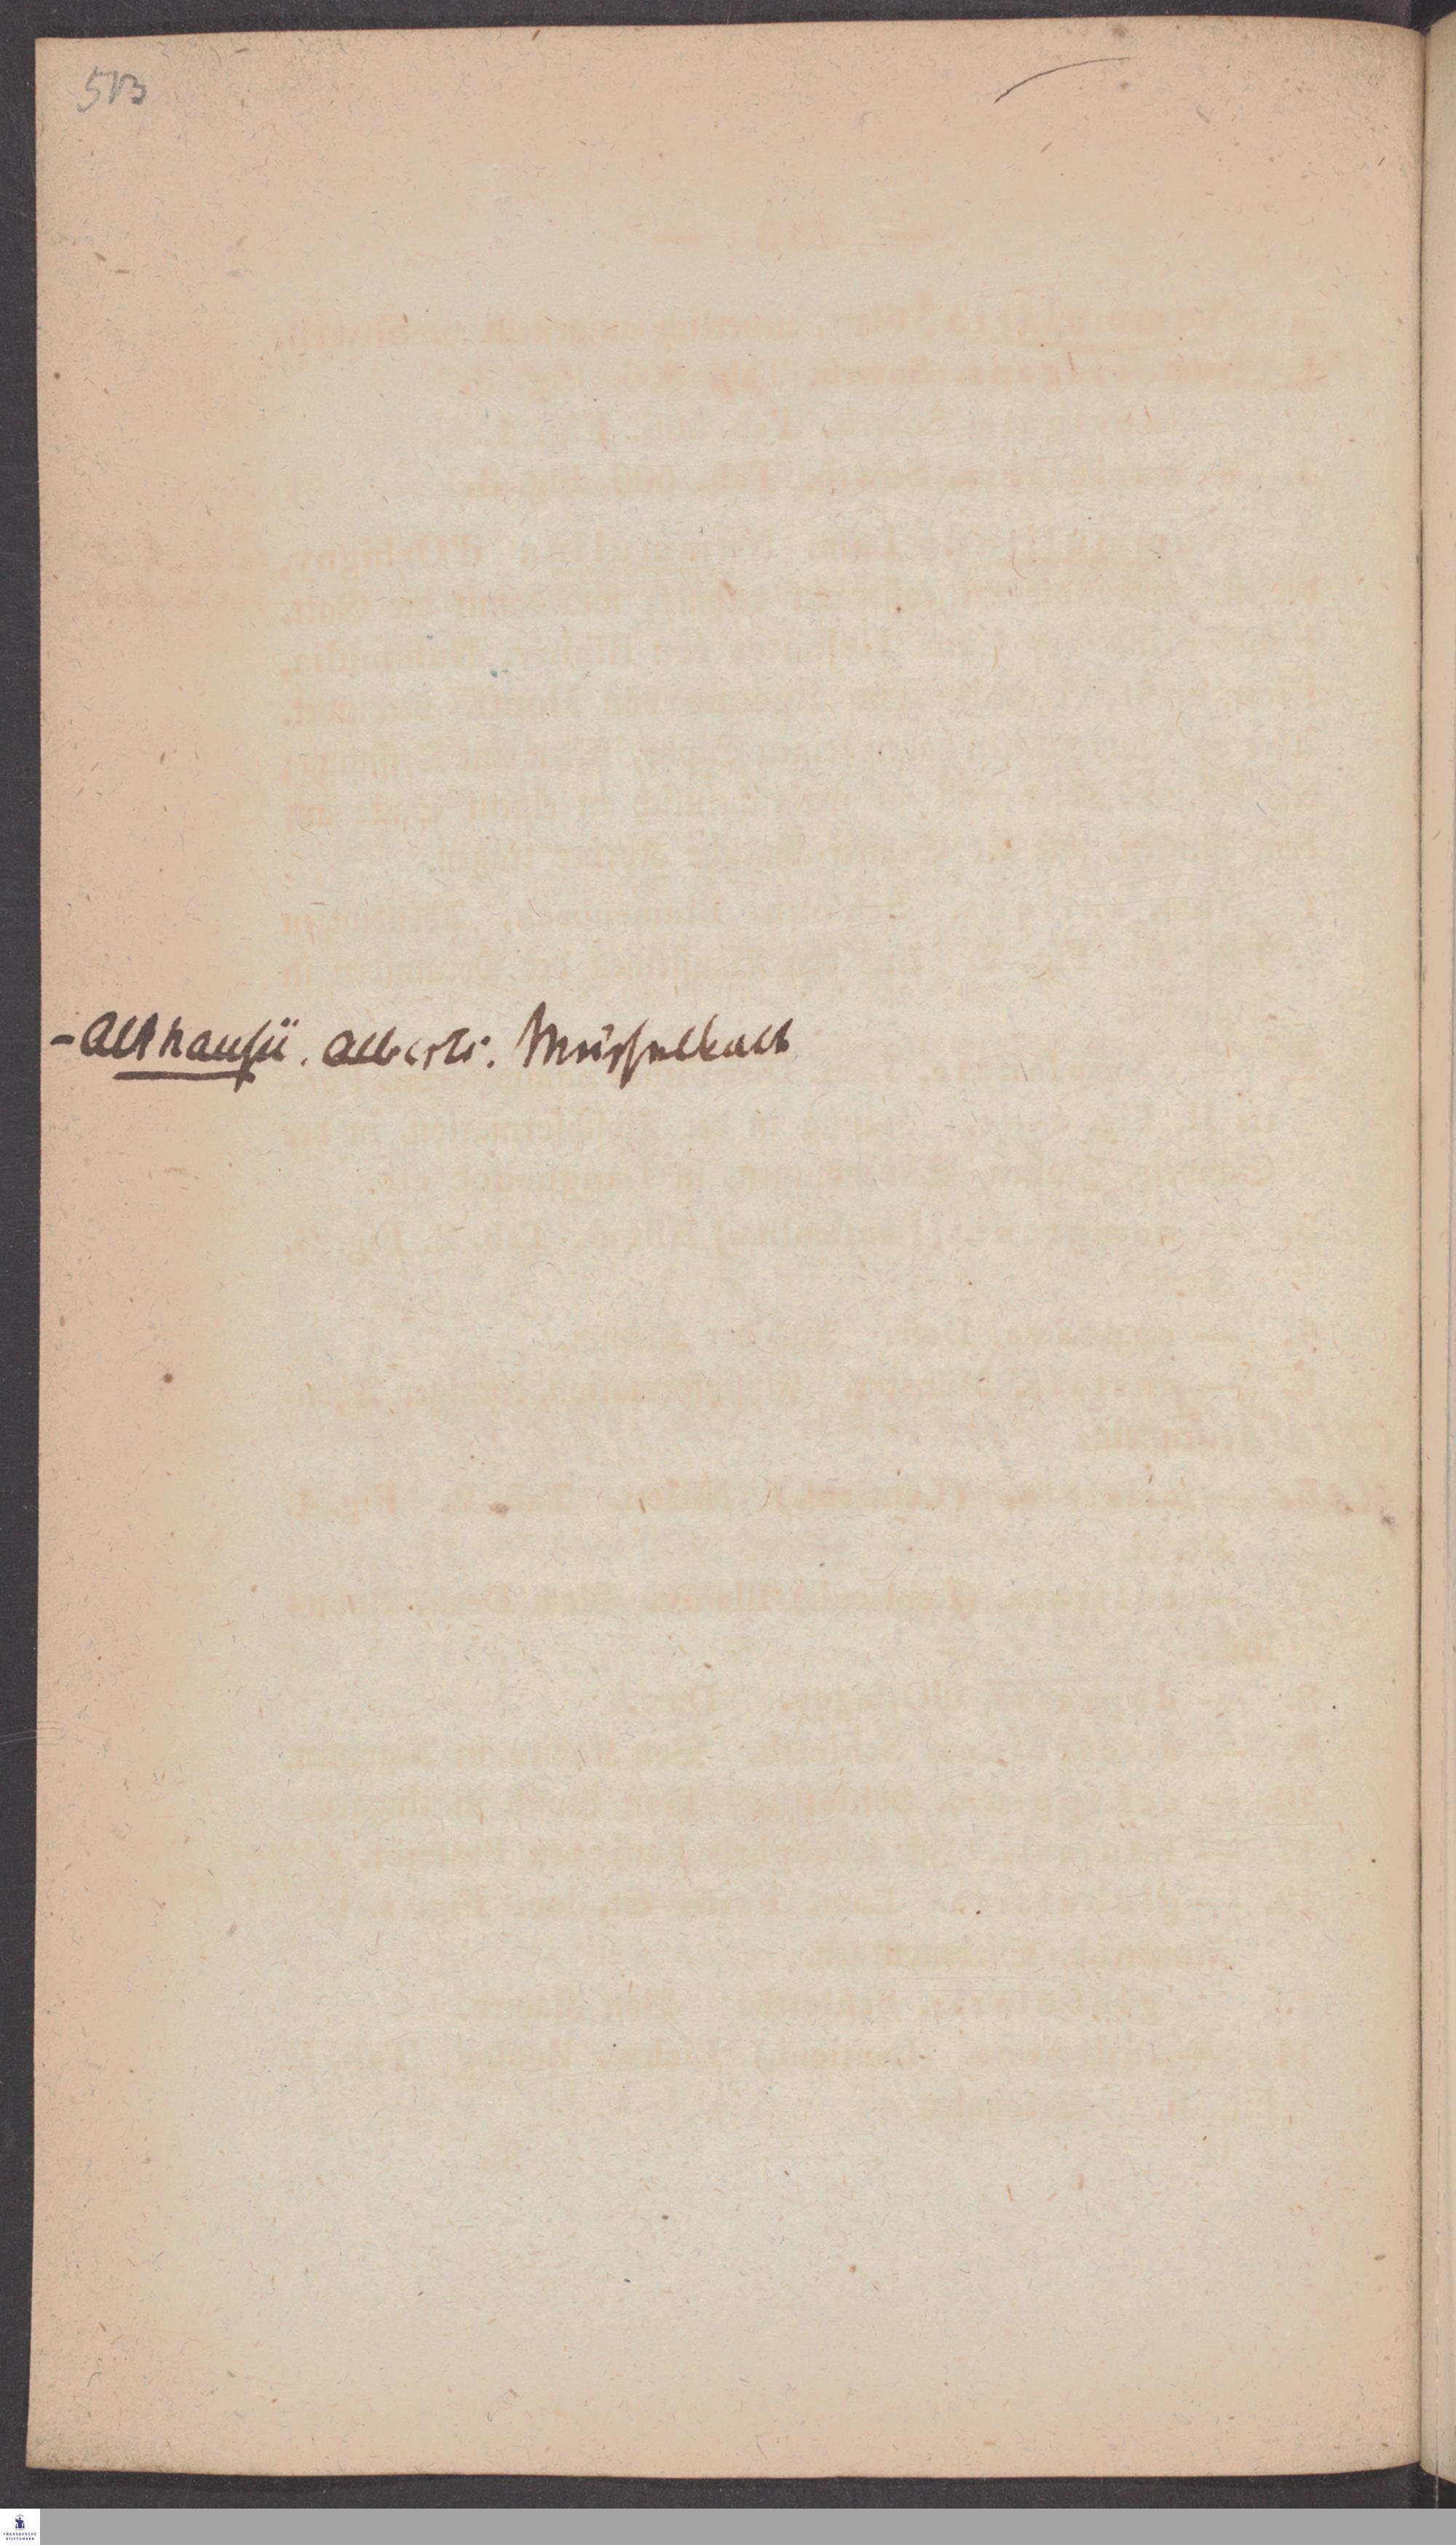 513
– Althausii. Alberti. Muschelkalk